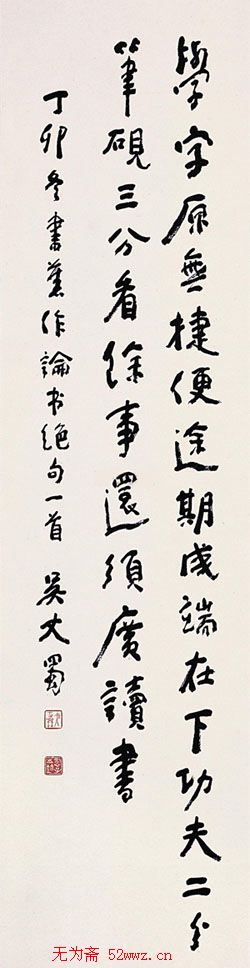 學字原無捷便途期成端在下功夫二分
筆硯三分看餘事還須廣讀書
丁卯冬書舊作論书絕句一首 吳丈蜀
无为斋 52wwz.cn